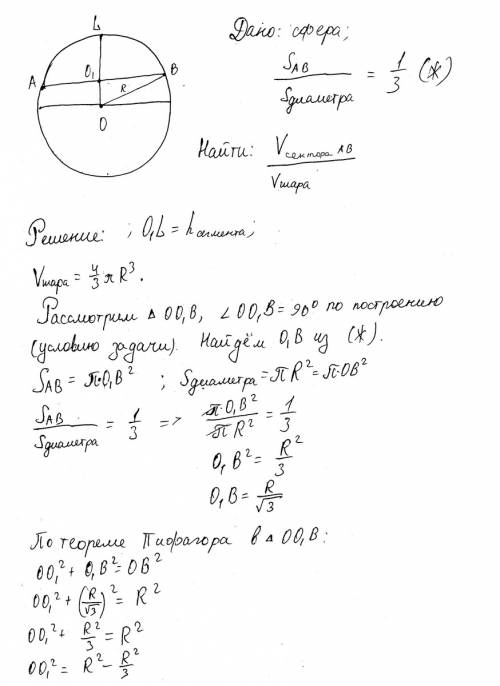 L
A
O₁
B
R
O
Дано: сфера;
S_AB / Sдиаметра = 1/3 (*)
Найти: V сектора AB / Vшара
Решение: ; O₁L = h сегмента;
Vшара = 4/3 πR³.
Рассмотрим △ OO₁B, ∠OO₁B = 90° по построению
(условию задачи). Найдём O₁B из (*).
S_AB = π·O₁B² ; Sдиаметра = πR² = π·OB²
S_AB / Sдиаметра = 1/3 => π·O₁B² / πR² = 1/3
O₁B² = R²/3
O₁B = R/√3
По теореме Пифагора в △ OO₁B:
OO₁² + O₁B² = OB²
OO₁² + (R/√3)² = R²
OO₁² + R²/3 = R²
OO₁² = R² - R²/3